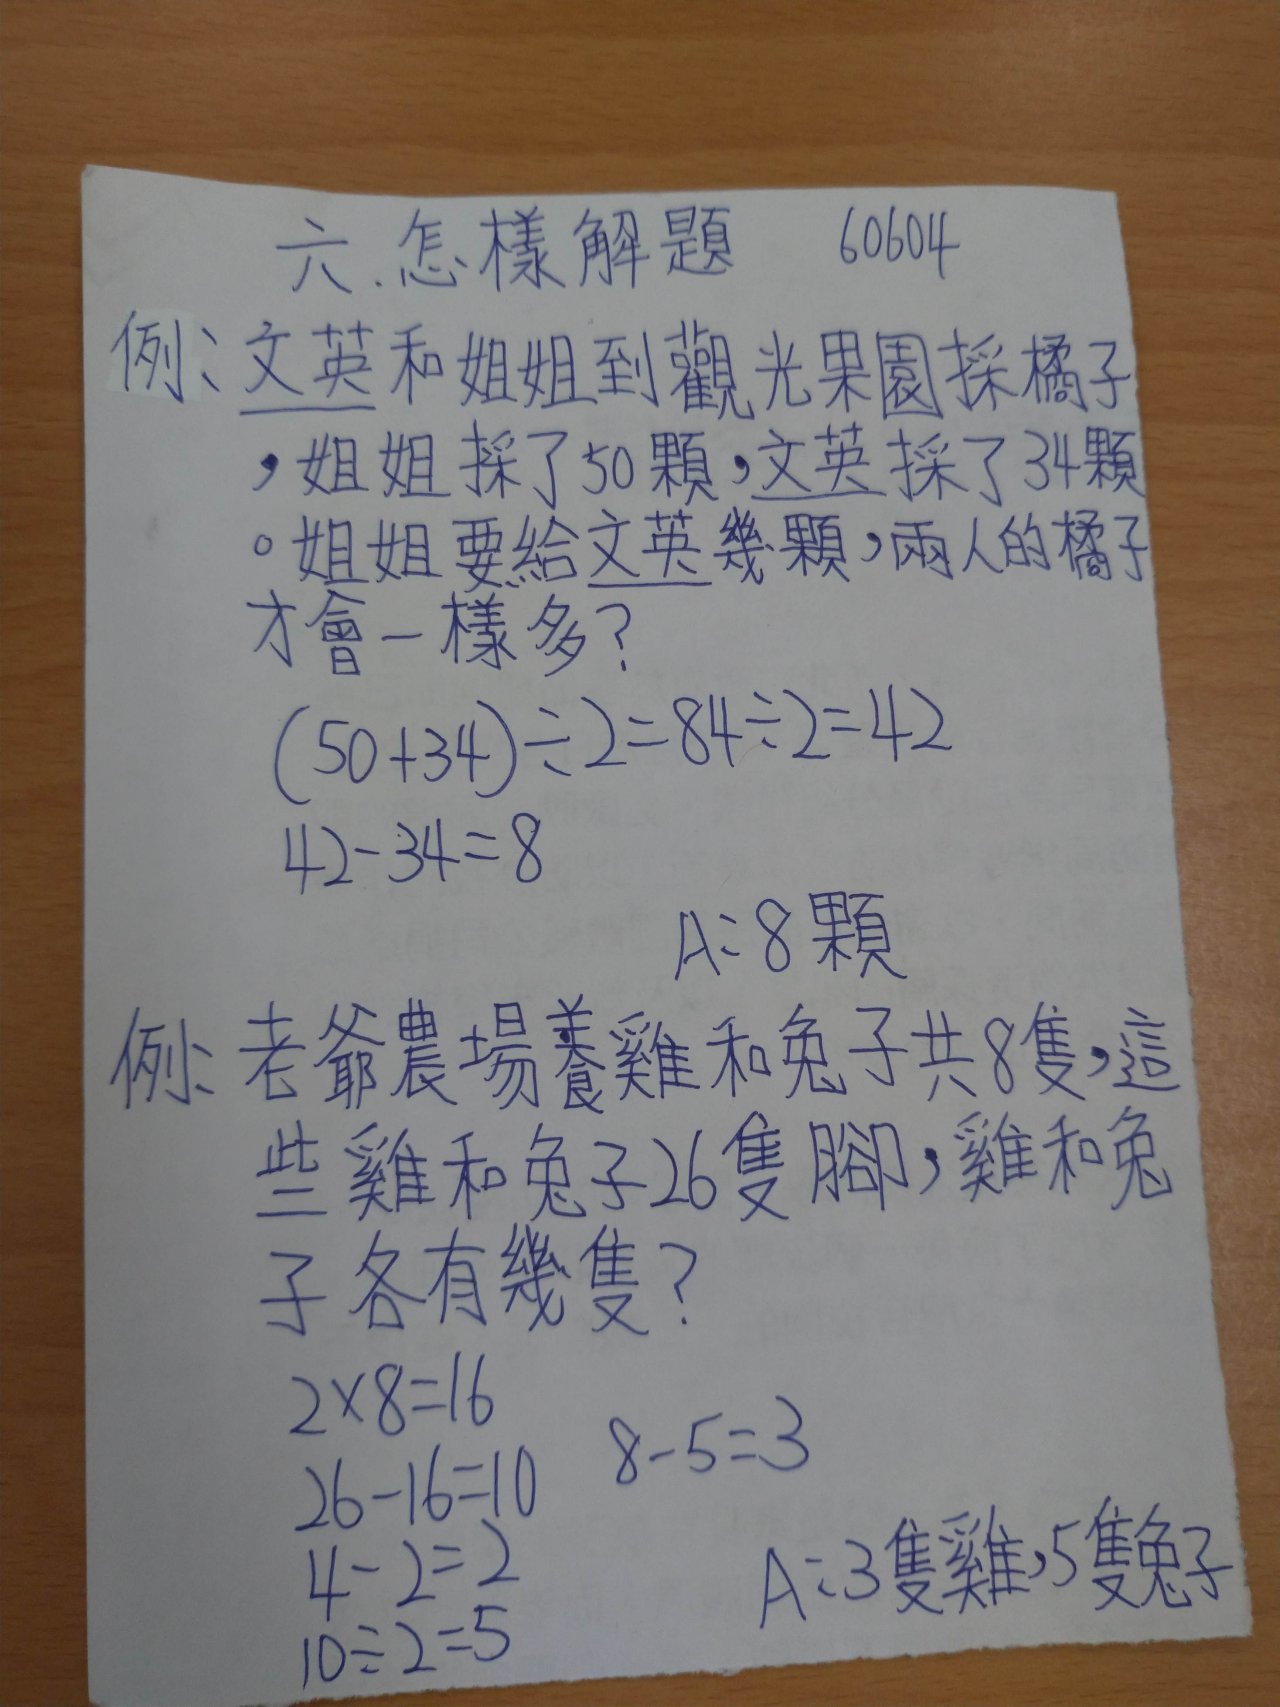 六.怎樣解題 60604
例:文英和姐姐到觀光果園採橘子
,姐姐採了50顆,文英採了34顆
。姐姐要給文英幾顆,兩人的橘子
才會一樣多?
(50+34)÷2=84÷2=42
42-34=8
A:8顆
例:老爺農場養雞和兔子共8隻,這
些雞和兔子26隻腳,雞和兔
子各有幾隻?
2×8=16
26-16=10 8-5=3
4-2=2
10÷2=5
A:3隻雞,5隻兔子